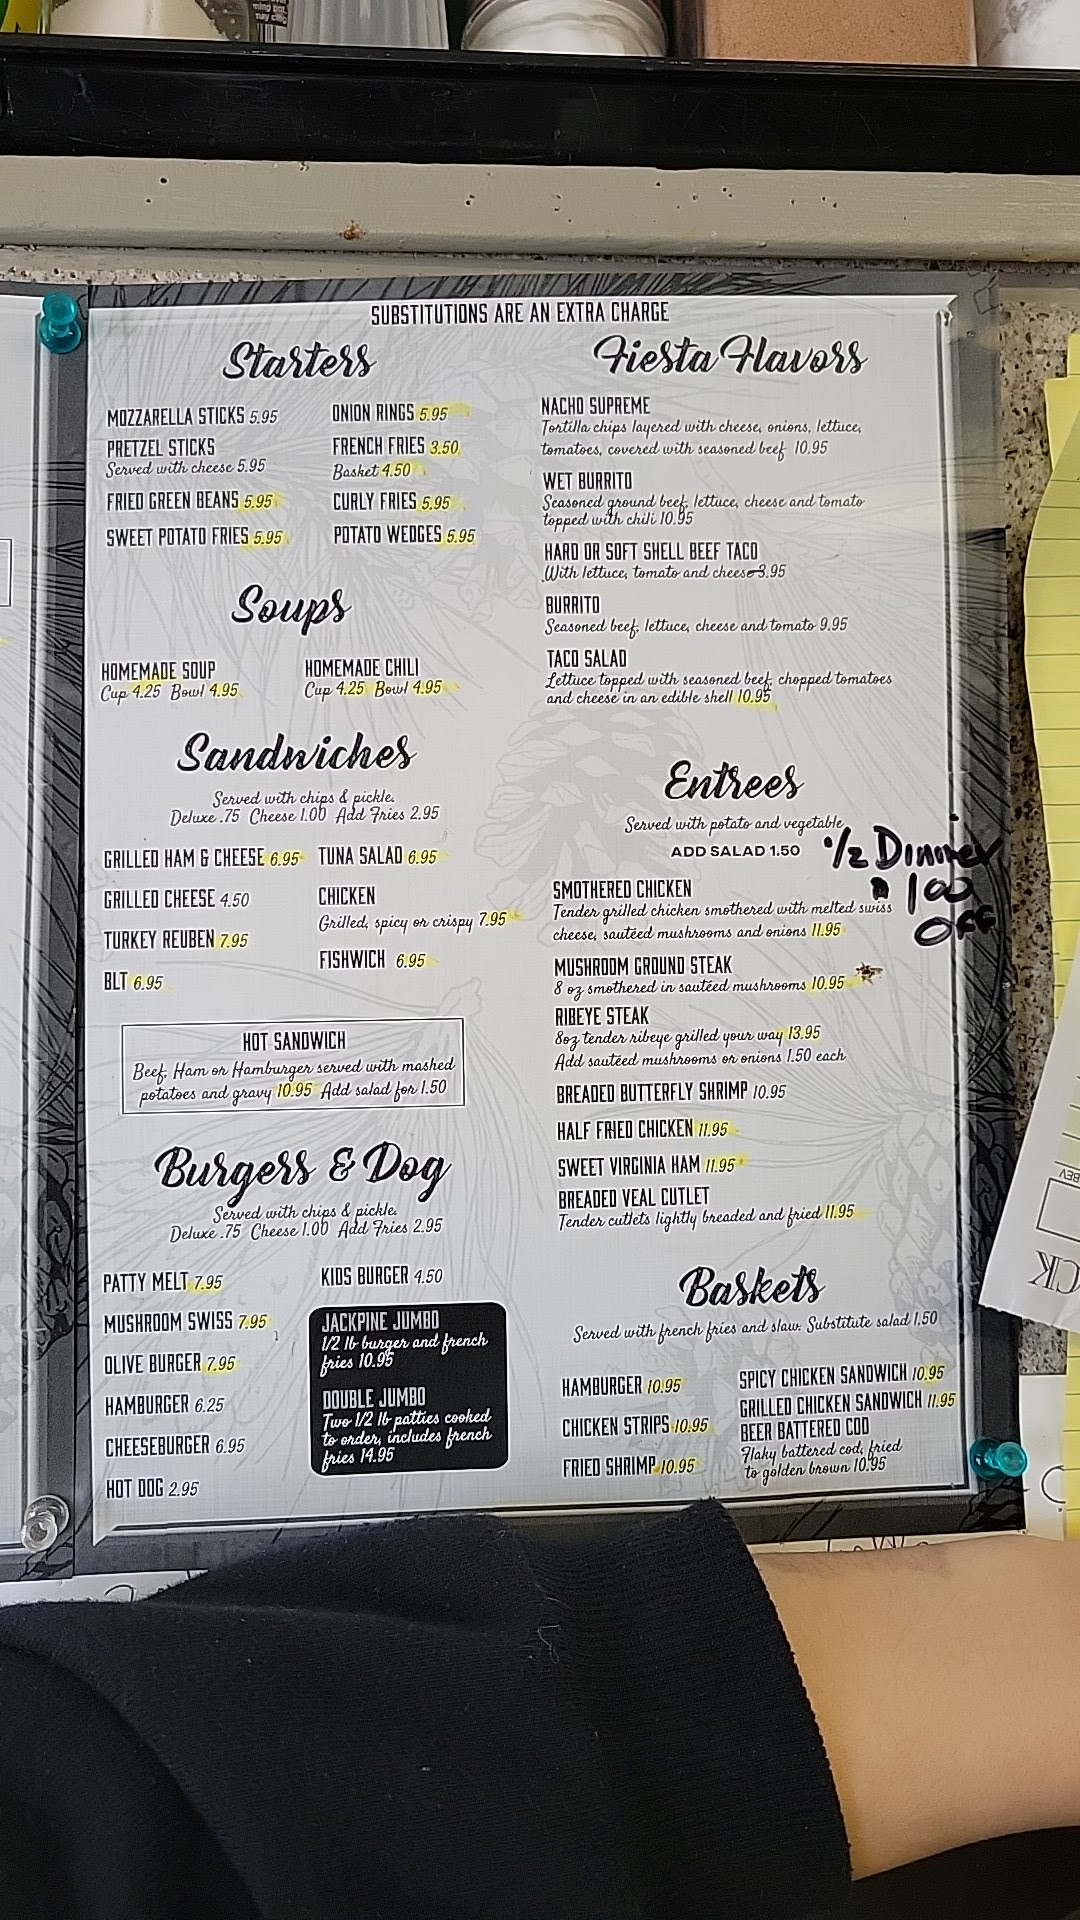 SUBSTITUTIONS ARE AN EXTRA CHARGE
Starters
MOZZARELLA STICKS 5.95
PRETZEL STICKS
Served with cheese 5.95
FRIED GREEN BEANS 5.95
SWEET POTATO FRIES 5.95
ONION RINGS 5.95
FRENCH FRIES 3.50
Basket 4.50
CURLY FRIES 5.95
POTATO WEDGES 5.95
Soups
HOMEMADE SOUP
Cup 4.25 Bowl 4.95
HOMEMADE CHILI
Cup 4.25 Bowl 4.95
Sandwiches
Served with chips & pickle.
Deluxe .75 Cheese 1.00 Add Fries 2.95
GRILLED HAM & CHEESE 6.95
GRILLED CHEESE 4.50
TURKEY REUBEN 7.95
BLT 6.95
TUNA SALAD 6.95
CHICKEN
Grilled, spicy or crispy 7.95
FISHWICH 6.95
HOT SANDWICH
Beef, Ham or Hamburger served with mashed
potatoes and gravy 10.95 Add salad for 1.50
Burgers & Dog
Served with chips & pickle.
Deluxe .75 Cheese 1.00 Add Fries 2.95
PATTY MELT 7.95
MUSHROOM SWISS 7.95
OLIVE BURGER 7.95
HAMBURGER 6.25
CHEESEBURGER 6.95
HOT DOG 2.95
KIDS BURGER 4.50
JACKPINE JUMBO
1/2 lb burger and french
fries 10.95
DOUBLE JUMBO
Two 1/2 lb patties cooked
to order, includes french
fries 14.95
Fiesta Flavors
NACHO SUPREME
Tortilla chips layered with cheese, onions, lettuce,
tomatoes, covered with seasoned beef 10.95
WET BURRITO
Seasoned ground beef, lettuce, cheese and tomato
topped with chili 10.95
HARD OR SOFT SHELL BEEF TACO
With lettuce, tomato and cheese 3.95
BURRITO
Seasoned beef, lettuce, cheese and tomato 9.95
TACO SALAD
Lettuce topped with seasoned beef, chopped tomatoes
and cheese in an edible shell 10.95
Entrees
Served with potato and vegetable
ADD SALAD 1.50
1/2 Dinner
100
OFF
SMOTHERED CHICKEN
Tender grilled chicken smothered with melted swiss
cheese, sautéed mushrooms and onions 11.95
MUSHROOM GROUND STEAK
8 oz smothered in sautéed mushrooms 10.95
RIBEYE STEAK
8oz tender ribeye grilled your way 13.95
Add sautéed mushrooms or onions 1.50 each
BREADED BUTTERFLY SHRIMP 10.95
HALF FRIED CHICKEN 11.95
SWEET VIRGINIA HAM 11.95
BREADED VEAL CUTLET
Tender cutlets lightly breaded and fried 11.95
Baskets
Served with french fries and slaw. Substitute salad 1.50
HAMBURGER 10.95
CHICKEN STRIPS 10.95
FRIED SHRIMP 10.95
SPICY CHICKEN SANDWICH 10.95
GRILLED CHICKEN SANDWICH 11.95
BEER BATTERED COD
Flaky battered cod, fried
to golden brown 10.95